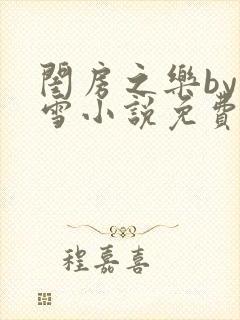 閨房之樂by
雪小說免費
程嘉喜